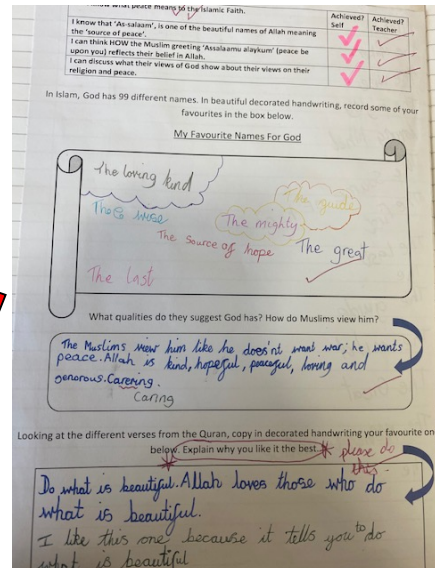 know what peace means to the Islamic Faith.
Achieved? Self
Achieved? Teacher
I know that 'As-salaam', is one of the beautiful names of Allah meaning
the 'source of peace'.
I can think HOW the Muslim greeting 'Assalaamu alaykum' (peace be
upon you) reflects their belief in Allah.
I can discuss what their views of God show about their views on their
religion and peace.
In Islam, God has 99 different names. In beautiful decorated handwriting, record some of your
favourites in the box below.
My Favourite Names For God
The loving kind
The guide
The wise
The mighty
The Source of hope
The great
The last
What qualities do they suggest God has? How do Muslims view him?
The Muslims view him like he does'nt want war; he wants
peace. Allah is kind, hopeful, peaceful, loving and
genorous. Carering.
Caring
Looking at the different verses from the Quran, copy in decorated handwriting your favourite on
below. Explain why you like it the best. please do
this
Do what is beautiful. Allah loves those who do
what is beautiful.
I like this one because it tells you to do
what is beautiful